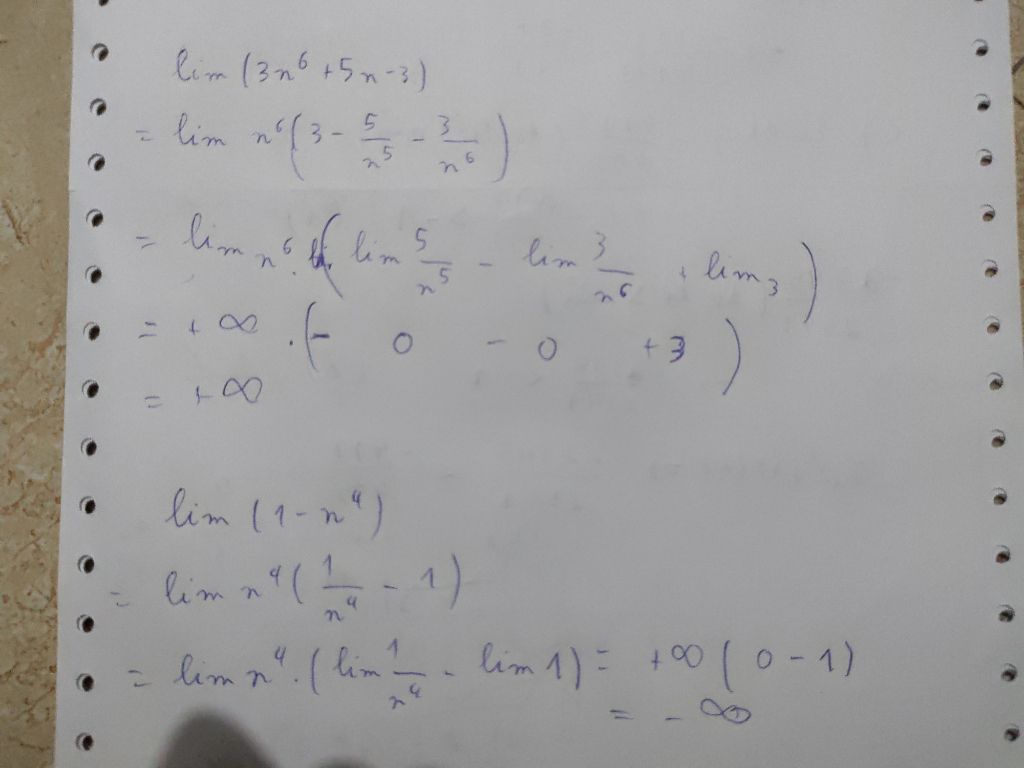 lim (3n⁶ +5n-3)
= lim n⁶(3 - 5/n⁵ - 3/n⁶)
= lim n⁶ . (lim 5/n⁵ - lim 3/n⁶ + lim 3)
= +∞ . (- 0 - 0 +3)
= +∞
lim (1-n⁴)
= lim n⁴ (1/n⁴ - 1)
= lim n⁴ . (lim 1/n⁴ - lim 1) = +∞ (0-1)
= -∞